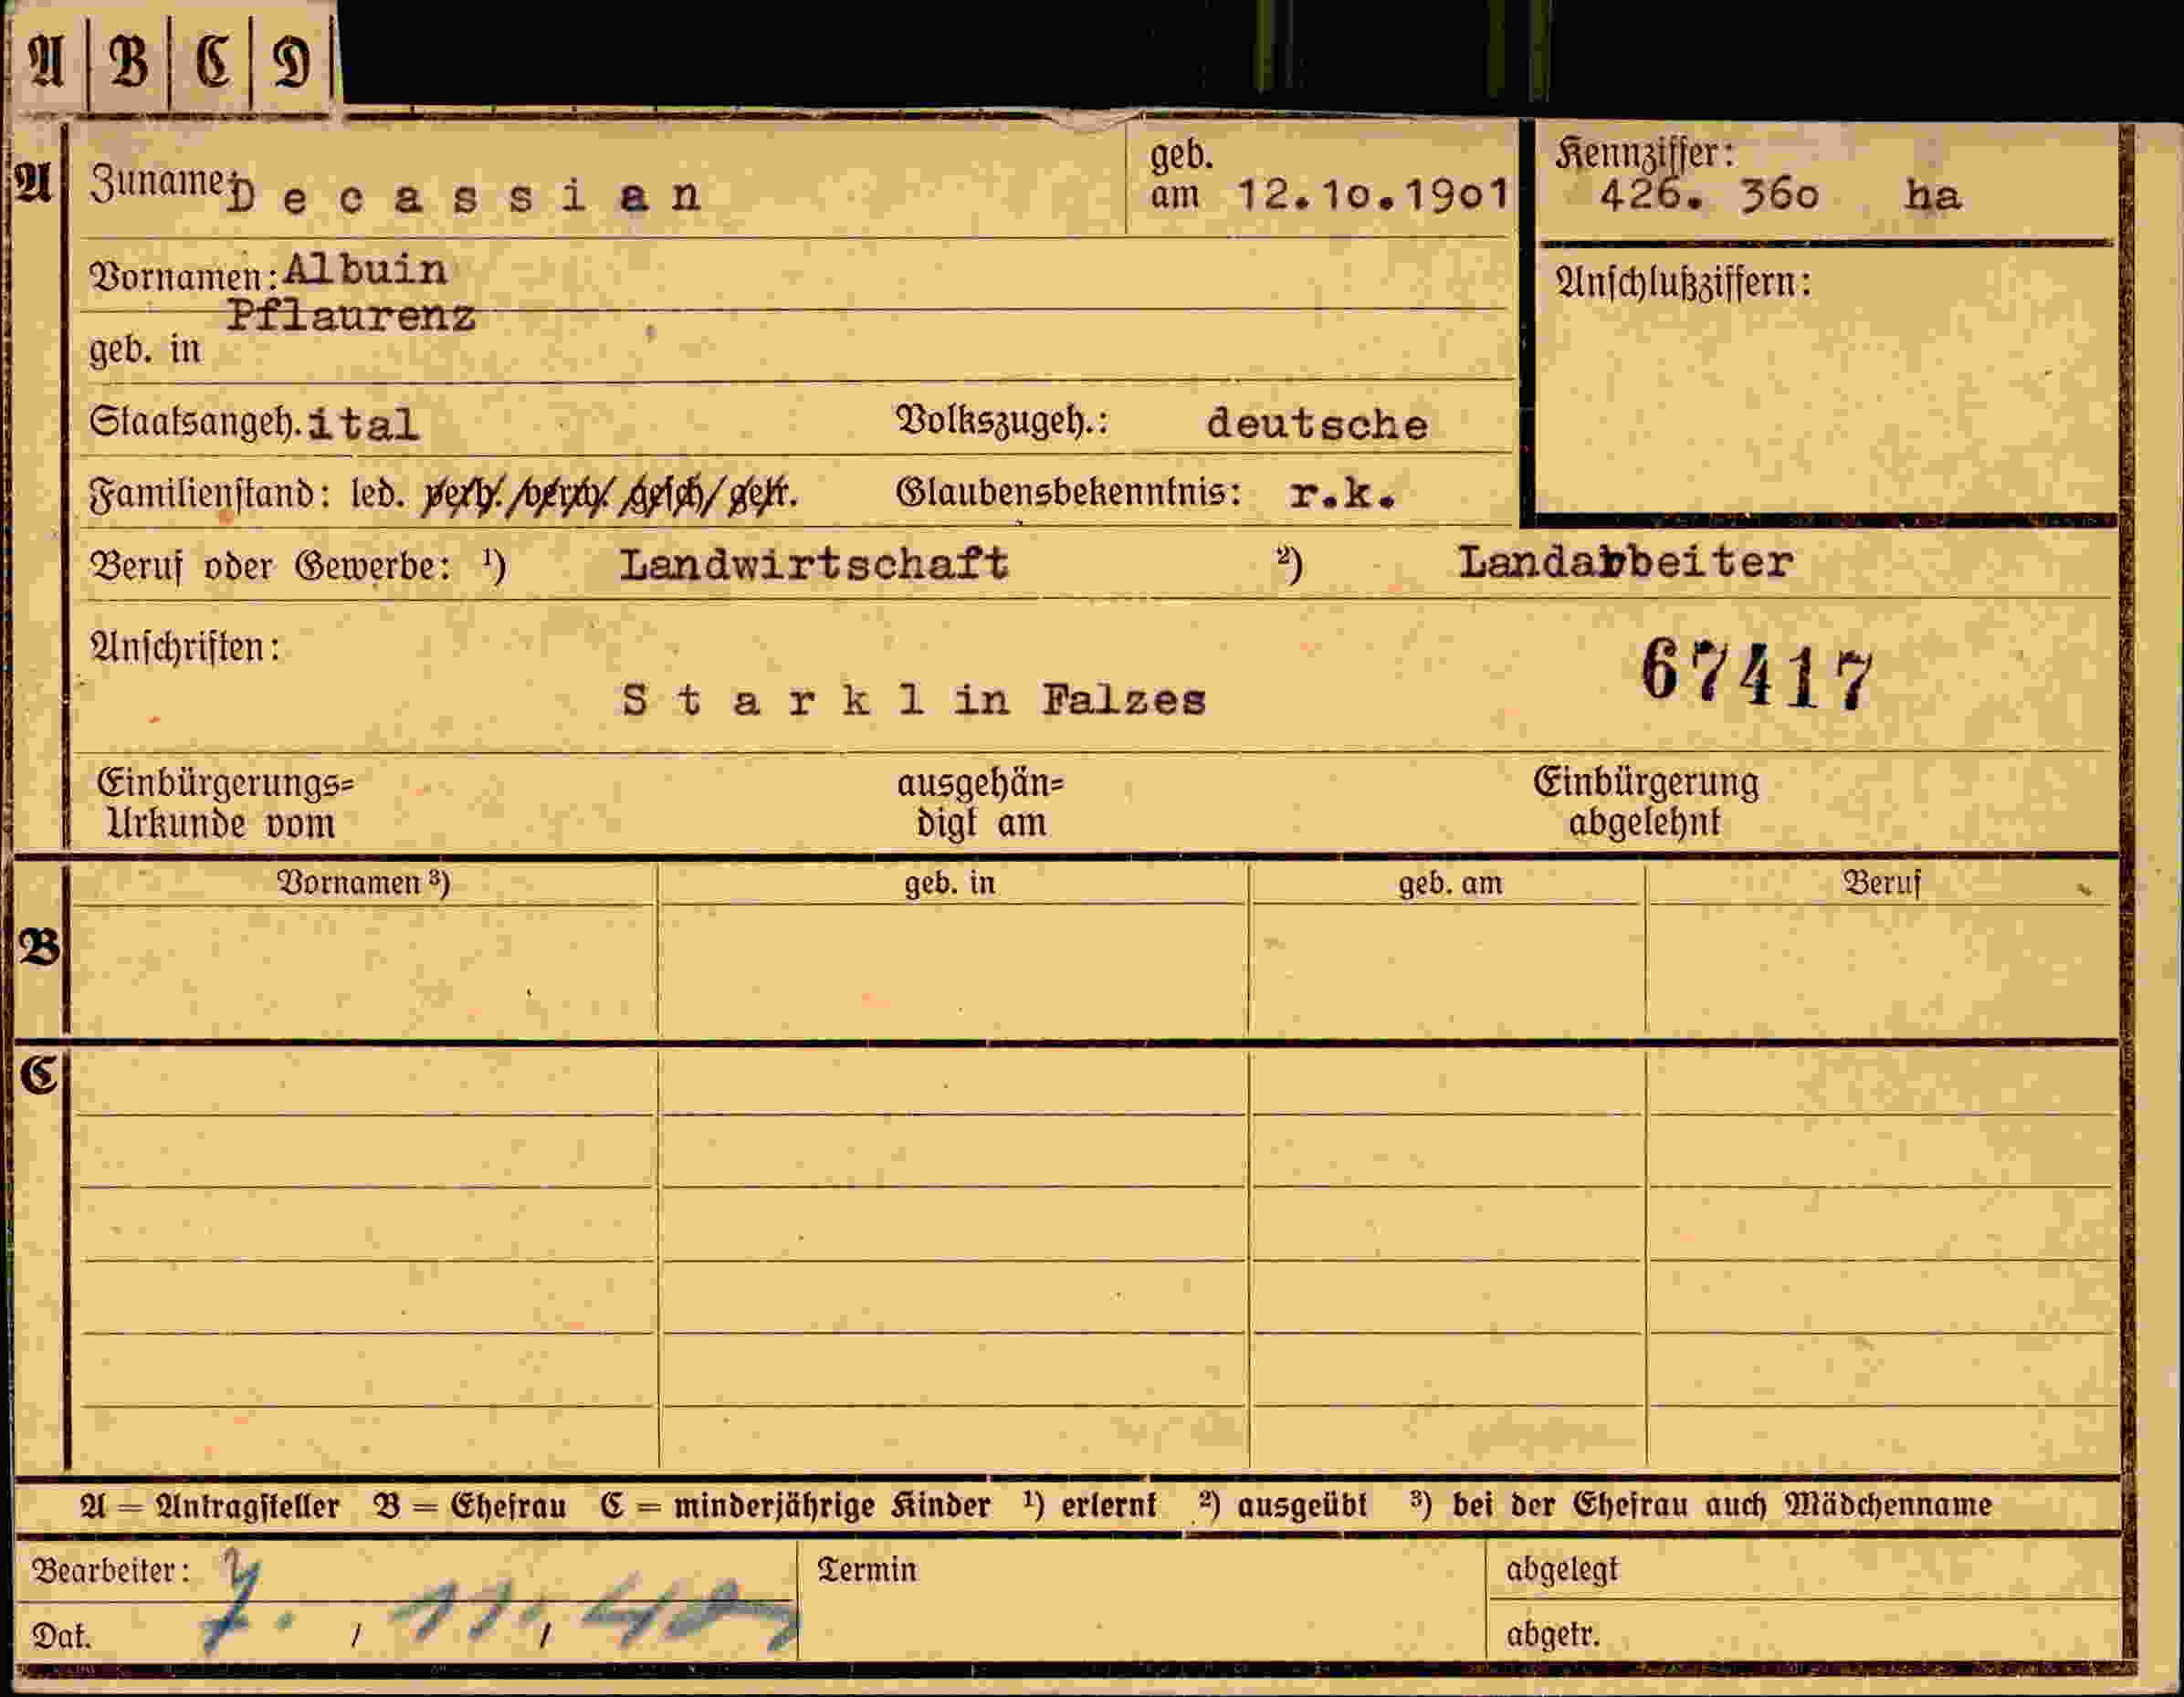 A B C D
A Zuname: Decassian geb. am 12.10.1901 Kennziffer: 426. 360 ha
Vornamen: Albuin Anschlußziffern:
geb. in Pflaurenz
Staatsangeh. ital Volkszugeh.: deutsche
Familienstand: led. verh./verw./gesch/getr. Glaubensbekenntnis: r.k.
Beruf oder Gewerbe: ¹) Landwirtschaft ²) Landarbeiter
Anschriften:
67417
Starkl in Falzes
Einbürgerungs= ausgehän= Einbürgerung
Urkunde vom digt am abgelehnt
Vornamen ³) geb. in geb. am Beruf
B
C
A = Antragsteller B = Ehefrau C = minderjährige Kinder ¹) erlernt ²) ausgeübt ³) bei der Ehefrau auch Mädchenname
Bearbeiter: Termin abgelegt
Dat. 7. / 11. / 40 abgetr.